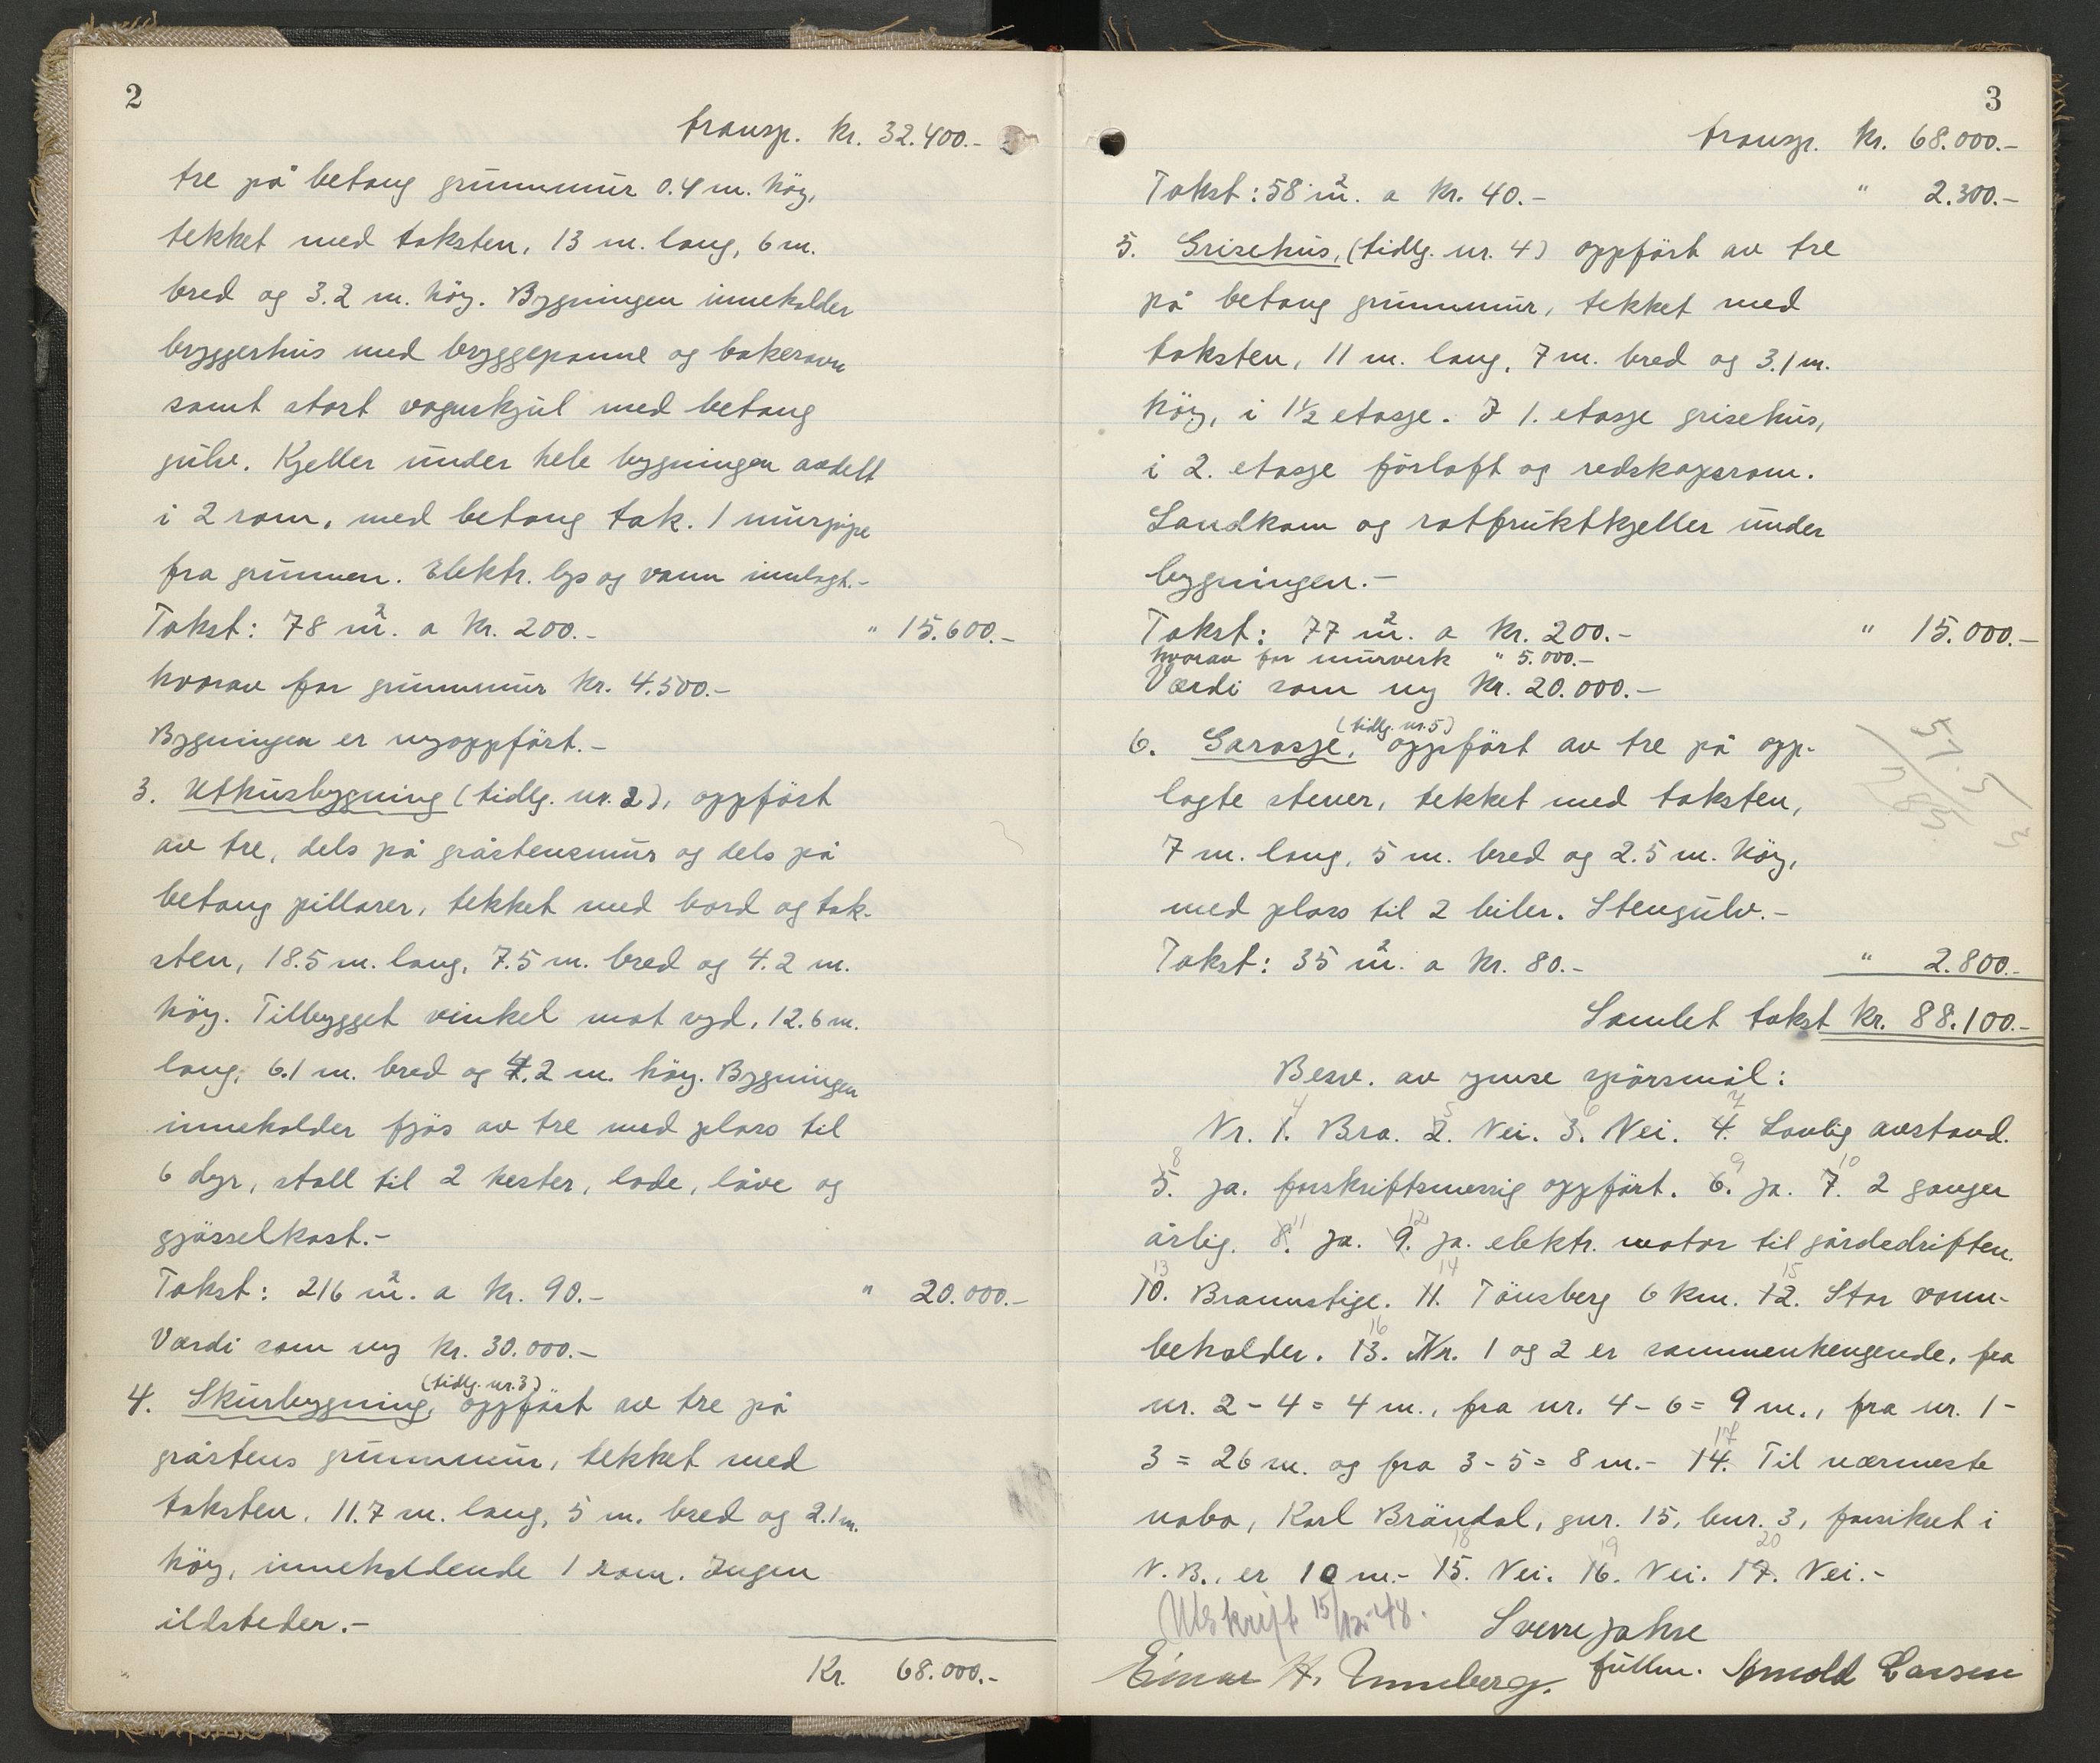 2
transp. kr. 32.400.-
tre på betong grunnmur 0.4 m. höy,
tekket med taksten, 13 m. lang, 6 m.
bred og 3.2 m. höy. Bygningen inneholder
bryggerhus med bryggepanne og bakerovn
samt stort vognskjul med betong
gulv. Kjeller under hele bygningen avdelt
i 2 rom, med betong tak. 1 murpipe
fra grunnen. Elektr. lys og vann innlagt.-
Takst: 78 m². a kr. 200.- " 15.600.-
hvorav for grunnmur kr. 4.500.-
Bygningen er nyoppfört.-
3. Uthusbygning (tidlg. nr. 2), oppfört
av tre, dels på gråstensmur og dels på
betong pillarer, tekket med bord og tak-
sten, 18.5 m. lang, 7.5 m. bred og 4.2 m.
höy. Tilbygget vinkel mot syd, 12.6 m.
lang, 6.1 m. bred og 4.2 m. höy. Bygningen
inneholder fjös av tre med plass til
6 dyr, stall til 2 hester, lade, låve og
gjösselkast.-
Takst: 216 m². a kr. 90.- " 20.000.-
Værdi som ny kr. 30.000.-
(tidlg. nr. 3)
4. Skurbygning, oppfört av tre på
gråstens grunnmur, tekket med
taksten. 11.7 m. lang, 5 m. bred og 2.1 m.
höy, inneholdende 1 rom. Ingen
ildsteder.-
Kr. 68.000.-
3
transp. kr. 68.000.-
Takst: 58 m². a kr. 40.- " 2.300.-
5. Grisehus, (tidlg. nr. 4) oppfört av tre
på betong grunnmur, tekket med
taksten, 11 m. lang, 7 m. bred og 3.1 m.
höy, i 1½ etasje. I 1. etasje grisehus,
i 2. etasje fôrloft og redskapsrom.
Landkom og rotfruktkjeller under
bygningen.-
Takst: 77 m². a kr. 200.- " 15.000.-
hvorav for murverk " 5.000.-
Værdi som ny kr. 20.000.-
(tidlg. nr. 5)
6. Garasje, oppfört av tre på opp-
lagte stener, tekket med taksten,
7 m. lang, 5 m. bred og 2.5 m. höy,
med plass til 2 biler. Stengulv.-
Takst: 35 m². a kr. 80.- " 2.800.-
Samlet takst kr. 88.100.-
Besv. av ymse spörsmål:
4 5 6 7
Nr. 1. Bra. 2. Nei. 3. Nei. 4. Lovlig avstand.
8 9 10
5. Ja. forskriftsmessig oppfört. 6. Ja. 7. 2 ganger
11 12
årlig. 8. Ja. 9. Ja. elektr. motor til gårdsdriften.
13 14 15
10. Brannstige. 11. Tönsberg 6 km. 12. Stor vann-
16
beholder. 13. Nr. 1 og 2 er sammenhengende, fra
nr. 2 - 4 = 4 m., fra nr. 4 - 6 = 9 m., fra nr. 1 -
17
3 = 26 m. og fra 3 - 5 = 8 m.- 14. Til nærmeste
nabo, Karl Bröndal, gnr. 15, bnr. 3, forsikret i
18 19 20
N.B., er 10 m.- 15. Nei. 16. Nei. 17. Nei.-
Utskrift 15/12-48.
Sverre Jahre
fullm.
Einar H. Unneberg. Arnold Larsen